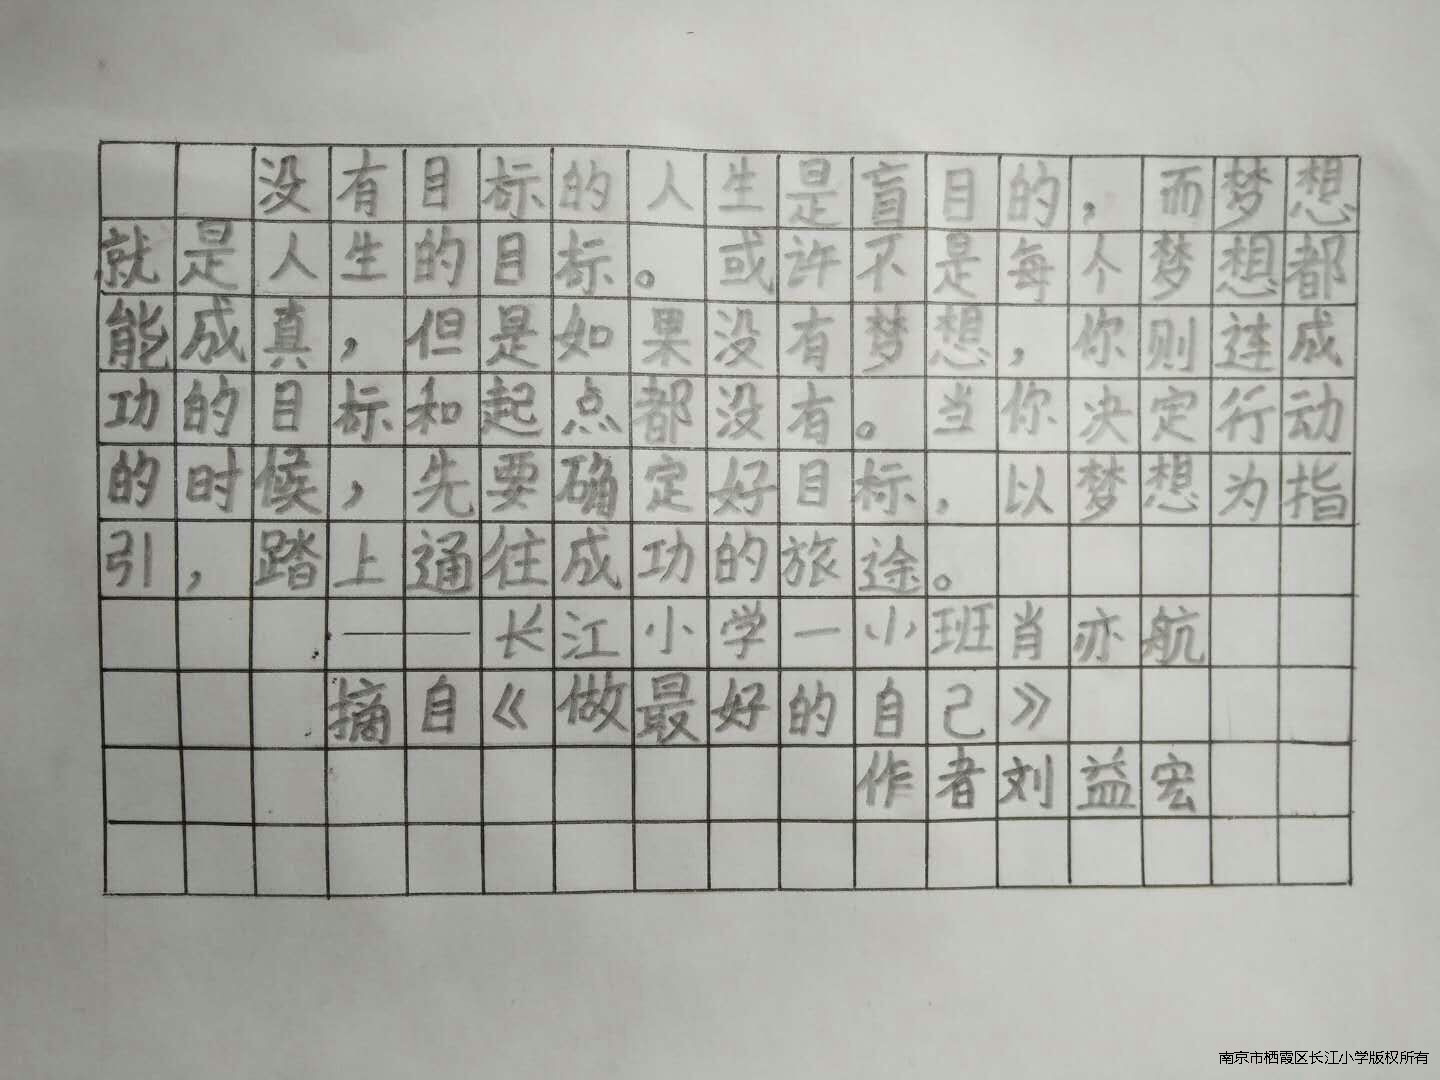 没有目标的人生是盲目的，而梦想
就是人生的目标。或许不是每个梦想都
能成真，但是如果没有梦想，你则连成
功的目标和起点都没有。当你决定行动
的时候，先要确定好目标，以梦想为指
引，踏上通往成功的旅途。
——长江小学一小班肖亦航
摘自《做最好的自己》
作者刘益宏
南京市栖霞区长江小学版权所有